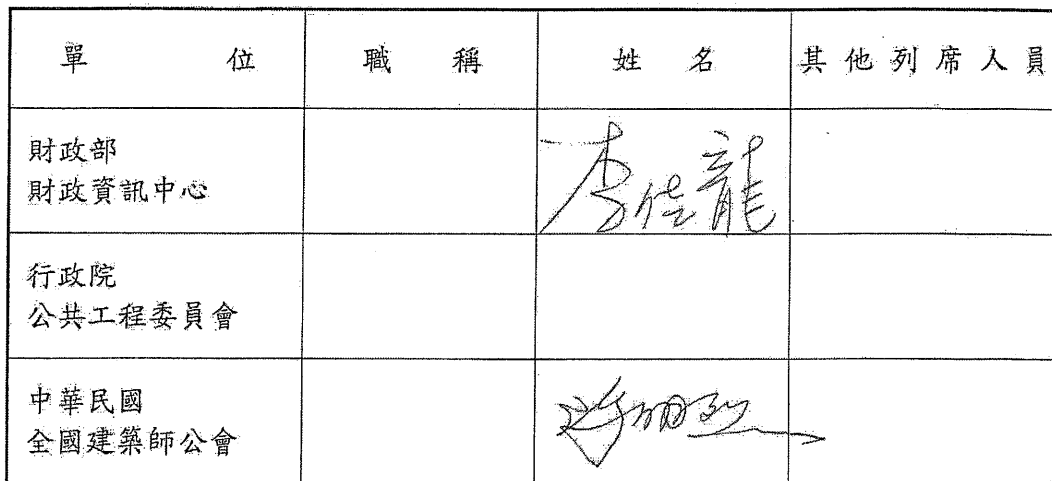 單位 職稱 姓名 其他列席人員
財政部
財政資訊中心
李佳龍
行政院
公共工程委員會
中華民國
全國建築師公會